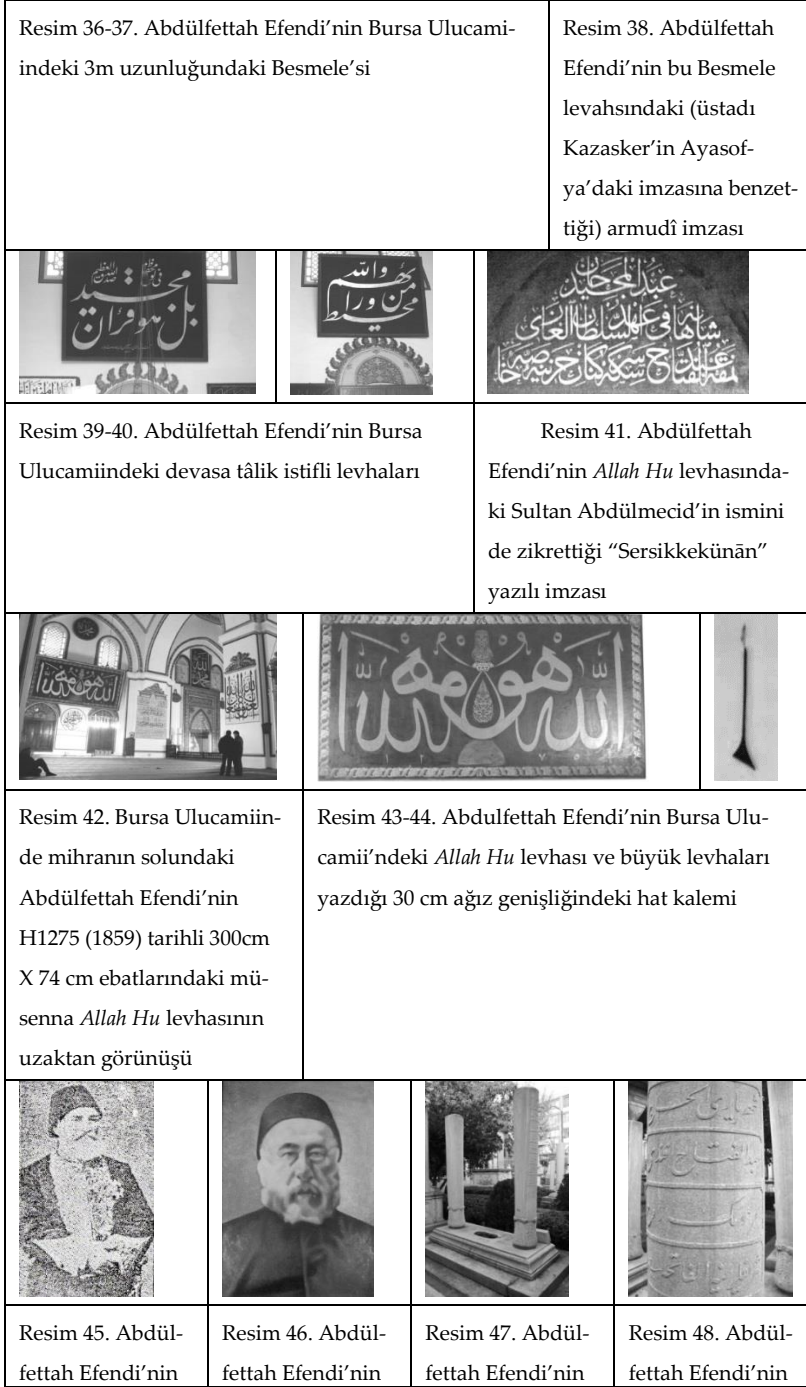 Resim 36-37. Abdülfettah Efendi’nin Bursa Ulucami-
indeki 3m uzunluğundaki Besmele’si
Resim 38. Abdülfettah
Efendi’nin bu Besmele
levahsındaki (üstadı
Kazasker’in Ayasof-
ya’daki imzasına benzet-
tiği) armudî imzası
بل هو قرآن مجيد
والله من ورائهم محيط
Resim 39-40. Abdülfettah Efendi’nin Bursa
Ulucamiindeki devasa tâlik istifli levhaları
Resim 41. Abdülfettah
Efendi’nin Allah Hu levhasında-
ki Sultan Abdülmecid’in ismini
de zikrettiği “Sersikkekünān”
yazılı imzası
الله هو
Resim 42. Bursa Ulucamiin-
de mihranın solundaki
Abdülfettah Efendi’nin
H1275 (1859) tarihli 300cm
X 74 cm ebatlarındaki mü-
senna Allah Hu levhasının
uzaktan görünüşü
Resim 43-44. Abdulfettah Efendi’nin Bursa Ulu-
camii’ndeki Allah Hu levhası ve büyük levhaları
yazdığı 30 cm ağız genişliğindeki hat kalemi
Resim 45. Abdül-
fettah Efendi’nin
Resim 46. Abdül-
fettah Efendi’nin
Resim 47. Abdül-
fettah Efendi’nin
Resim 48. Abdül-
fettah Efendi’nin